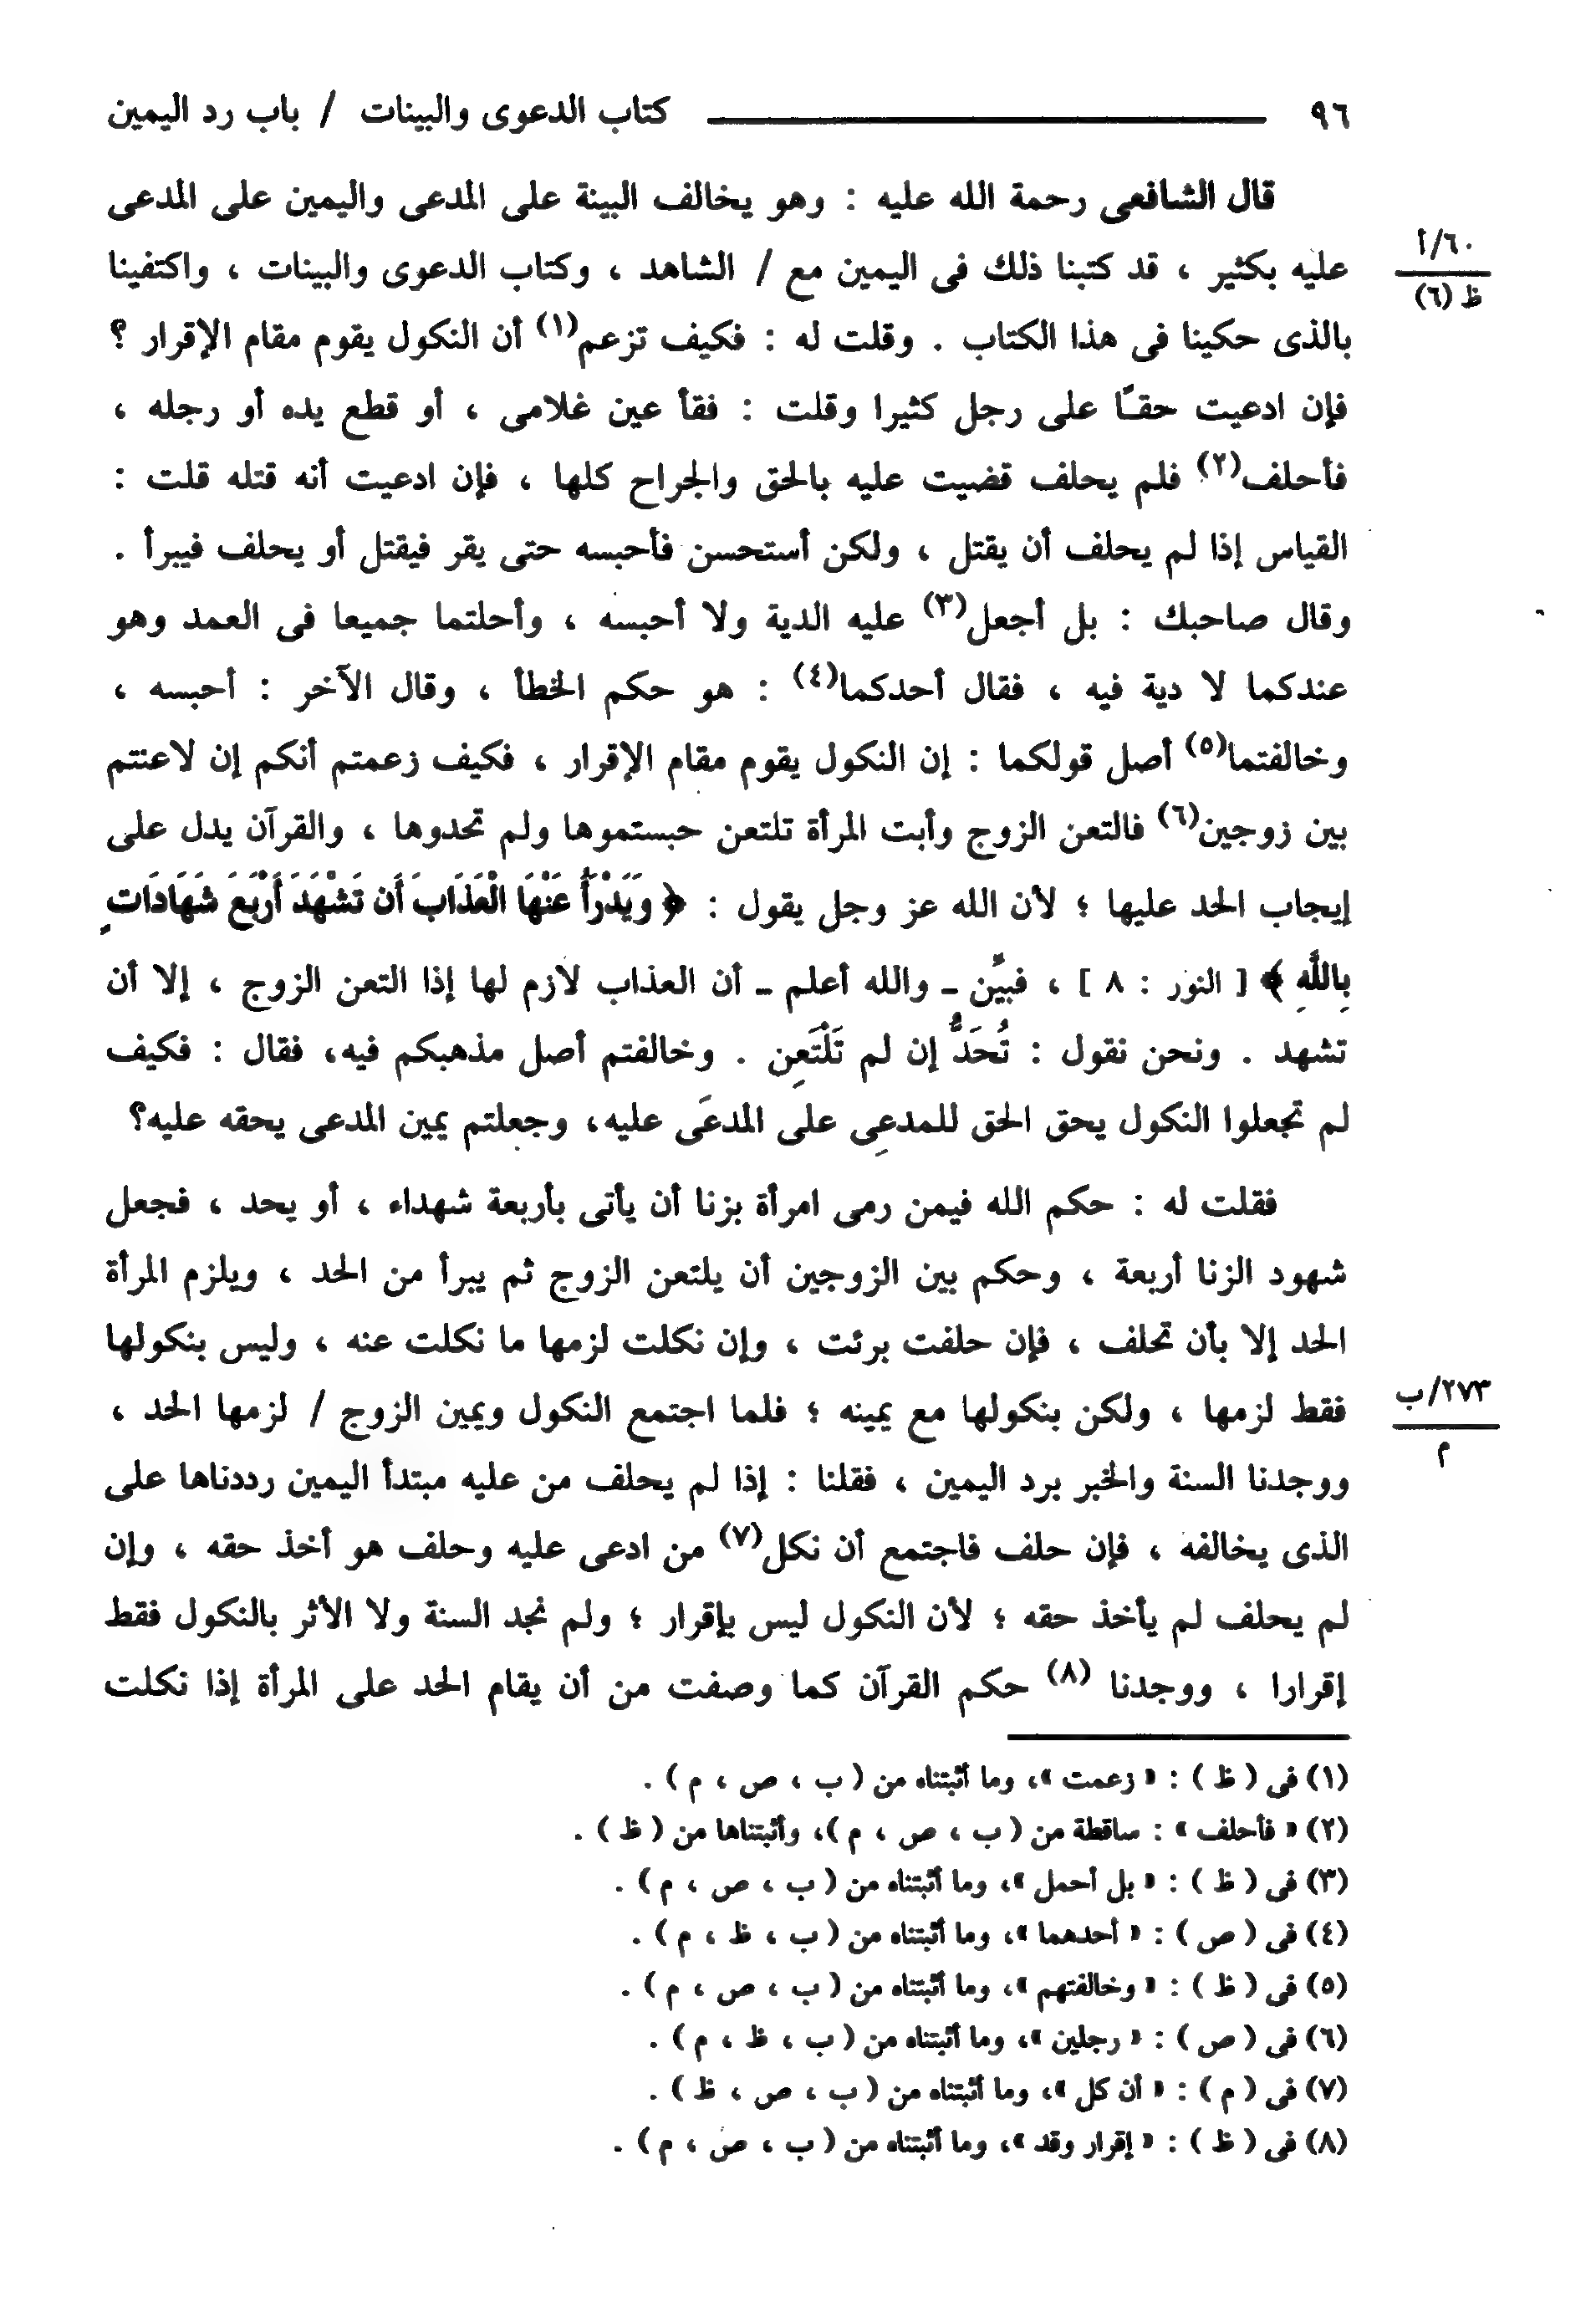 ٩٦ ــــــــــــــــــــ كتاب الدعوى والبينات / باب رد اليمين
قال الشافعى رحمة الله عليه : وهو يخالف البينة على المدعى واليمين على المدعى
عليه بكثير ، قد كتبنا ذلك فى اليمين مع / الشاهد ، وكتاب الدعوى والبينات ، واكتفينا
٦٠/أ
ظ (٦)
بالذى حكينا فى هذا الكتاب . وقلت له : فكيف تزعم(١) أن النكول يقوم مقام الإقرار ؟
فإن ادعيت حقّا على رجل كثيرا وقلت : فقأ عين غلامى ، أو قطع يده أو رجله ،
فأحلف(٢) فلم يحلف قضيت عليه بالحق والجراح كلها ، فإن ادعيت أنه قتله قلت :
القياس إذا لم يحلف أن يقتل ، ولكن أستحسن فأحبسه حتى يقر فيقتل أو يحلف فيبرأ .
وقال صاحبك : بل أجعل(٣) عليه الدية ولا أحبسه ، وأحلتما جميعا فى العمد وهو
عندكما لا دية فيه ، فقال أحدكما(٤) : هو حكم الخطأ ، وقال الآخر : أحبسه ،
وخالفتما(٥) أصل قولكما : إن النكول يقوم مقام الإقرار ، فكيف زعمتم أنكم إن لاعنتم
بين زوجين(٦) فالتعن الزوج وأبت المرأة تلتعن حبستموها ولم تحدوها ، والقرآن يدل على
إيجاب الحد عليها ؛ لأن الله عز وجل يقول : ﴿ وَيَدْرَأُ عَنْهَا الْعَذَابَ أَن تَشْهَدَ أَرْبَعَ شَهَادَاتٍ
بِاللَّهِ ﴾ [ النور : ٨ ] ، فبيَّن ـ والله أعلم ـ أن العذاب لازم لها إذا التعن الزوج ، إلا أن
تشهد . ونحن نقول : تُحَدُّ إن لم تَلْتَعِن . وخالفتم أصل مذهبكم فيه، فقال : فكيف
لم تجعلوا النكول يحق الحق للمدعِى على المدعَى عليه، وجعلتم يمين المدعى يحقه عليه؟
فقلت له : حكم الله فيمن رمى امرأة بزنا أن يأتى بأربعة شهداء ، أو يحد ، فجعل
شهود الزنا أربعة ، وحكم بين الزوجين أن يلتعن الزوج ثم يبرأ من الحد ، ويلزم المرأة
الحد إلا بأن تحلف ، فإن حلفت برئت ، وإن نكلت لزمها ما نكلت عنه ، وليس بنكولها
فقط لزمها ، ولكن بنكولها مع يمينه ؛ فلما اجتمع النكول ويمين الزوج / لزمها الحد ،
٢٧٣/ب
م
ووجدنا السنة والخبر برد اليمين ، فقلنا : إذا لم يحلف من عليه مبتدأ اليمين رددناها على
الذى يخالفه ، فإن حلف فاجتمع أن نكل(٧) من ادعى عليه وحلف هو أخذ حقه ، وإن
لم يحلف لم يأخذ حقه ؛ لأن النكول ليس بإقرار ؛ ولم نجد السنة ولا الأثر بالنكول فقط
إقرارا ، ووجدنا (٨) حكم القرآن كما وصفت من أن يقام الحد على المرأة إذا نكلت
(١) فى ( ظ ) : « زعمت »، وما أثبتناه من ( ب ، ص ، م ) .
(٢) « فأحلف » : ساقطة من ( ب ، ص ، م )، وأثبتناها من ( ظ ) .
(٣) فى ( ظ ) : « بل أحمل »، وما أثبتناه من ( ب ، ص ، م ) .
(٤) فى ( ص ) : « أحدهما »، وما أثبتناه من ( ب ، ظ ، م ) .
(٥) فى ( ظ ) : « وخالفتهم »، وما أثبتناه من ( ب ، ص ، م ) .
(٦) فى ( ص ) : « رجلين »، وما أثبتناه من ( ب ، ظ ، م ) .
(٧) فى ( م ) : « أن كل »، وما أثبتناه من ( ب ، ص ، ظ ) .
(٨) فى ( ظ ) : « إقرار وقد »، وما أثبتناه من ( ب ، ص ، م ) .